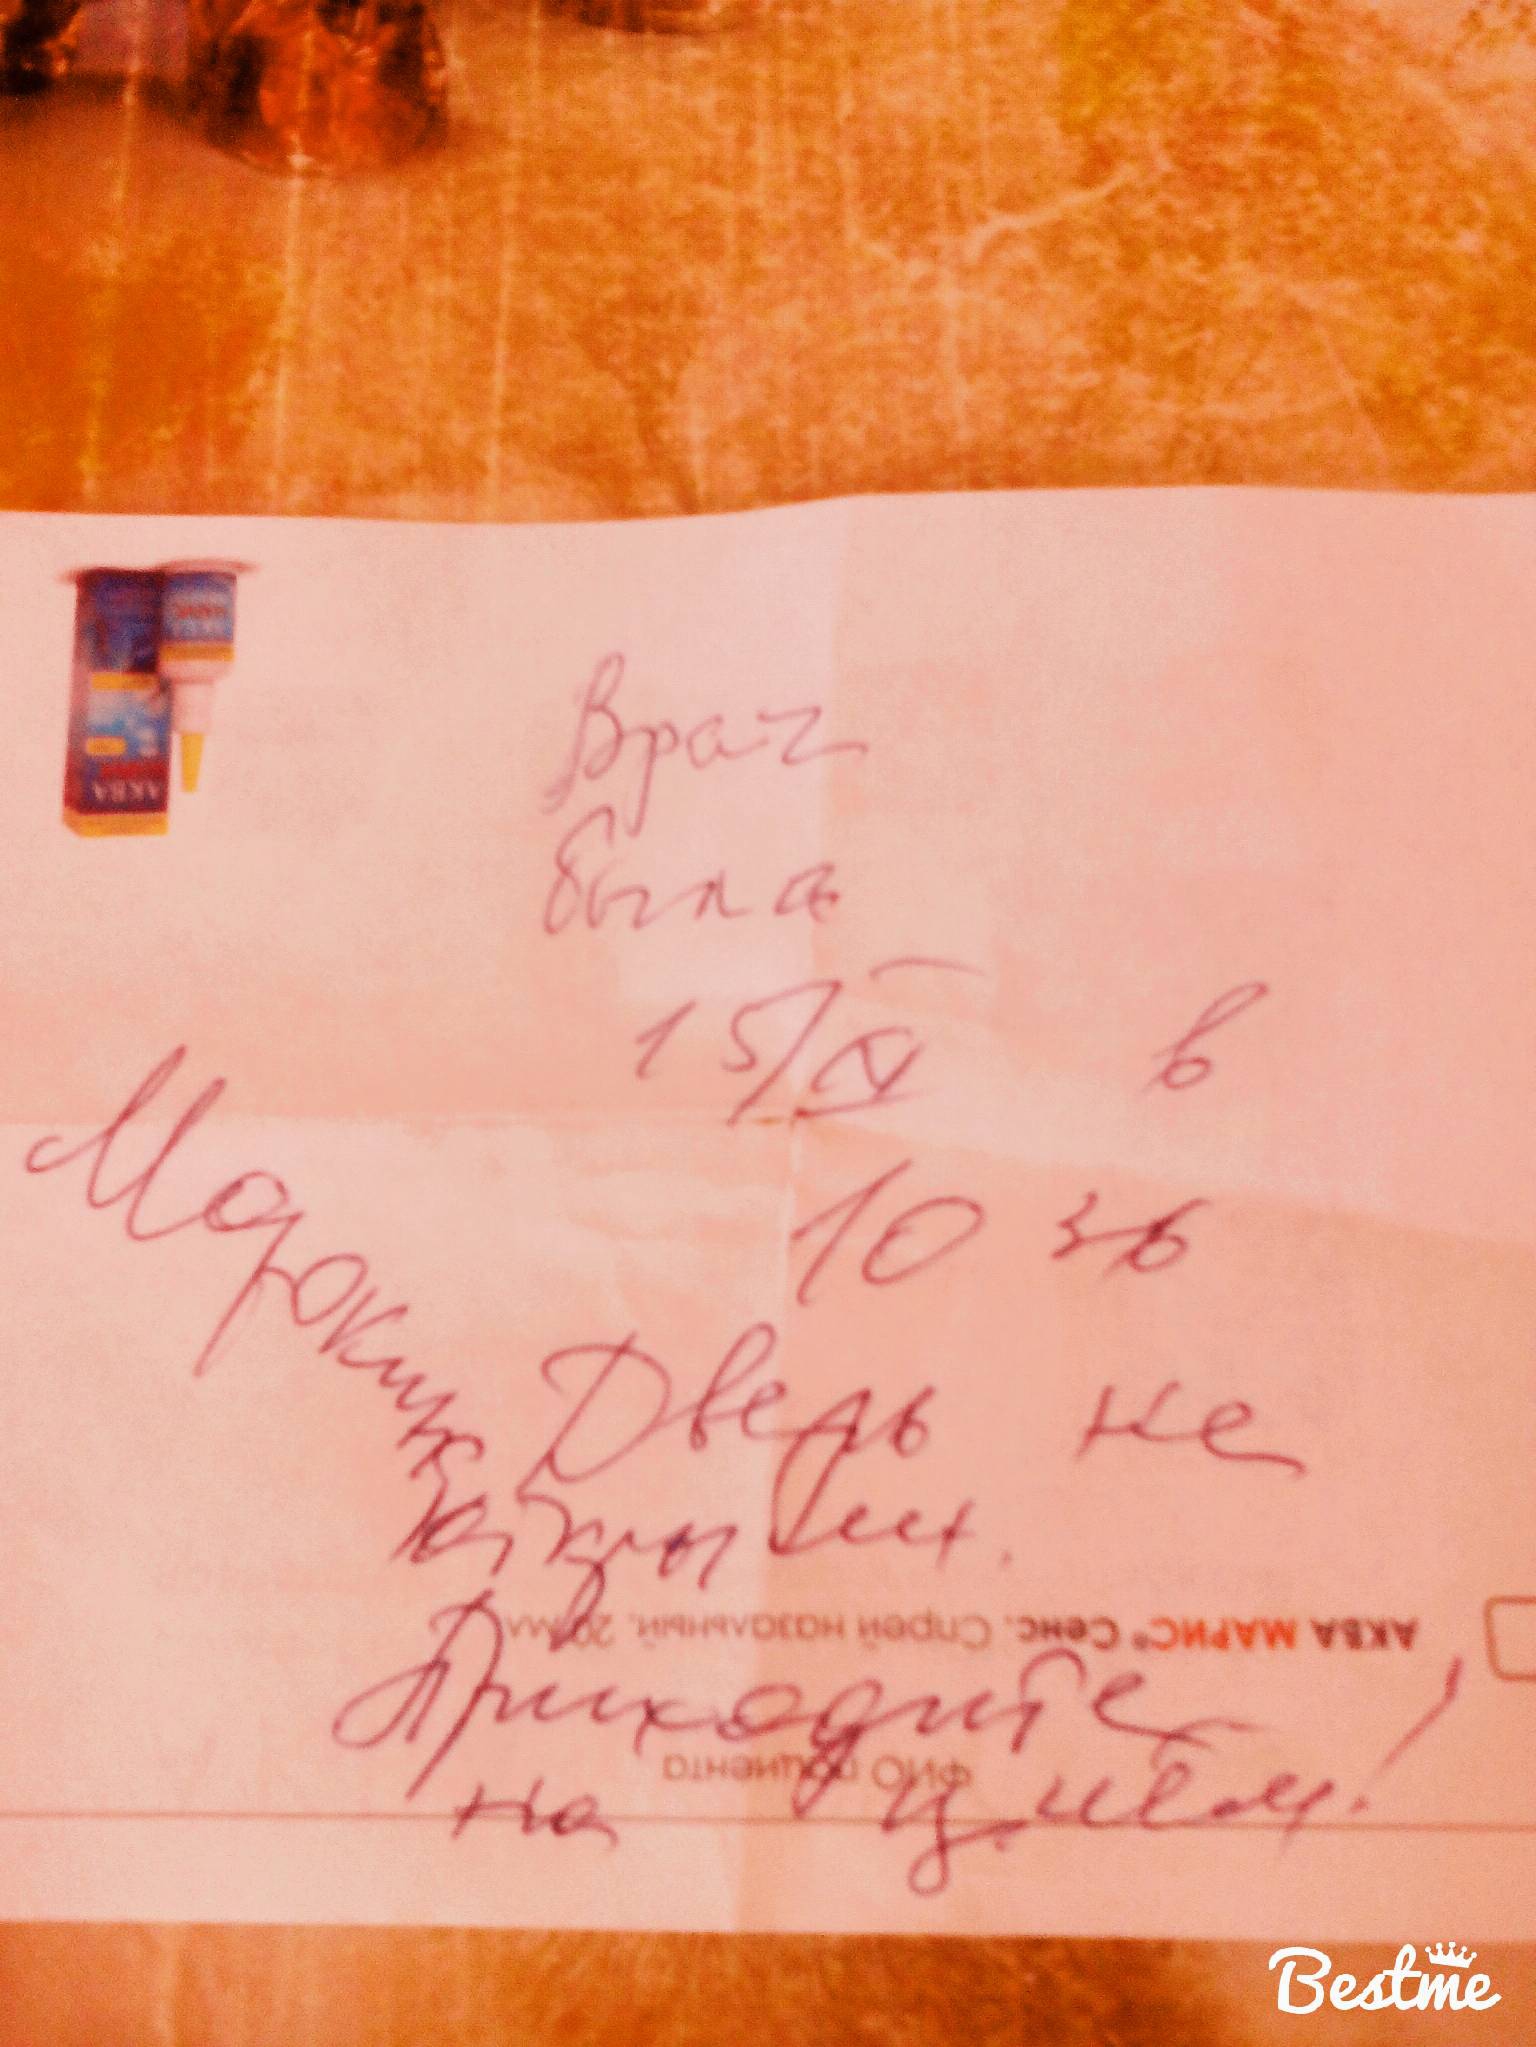 Врач
была
15/XI в
10 36
Дверь не
открыли.
Приходите
на прием!
АКВА МАРИС® Сенс. Спрей назальный, 20 мл
ФИО пациента
АКВА
Bestme